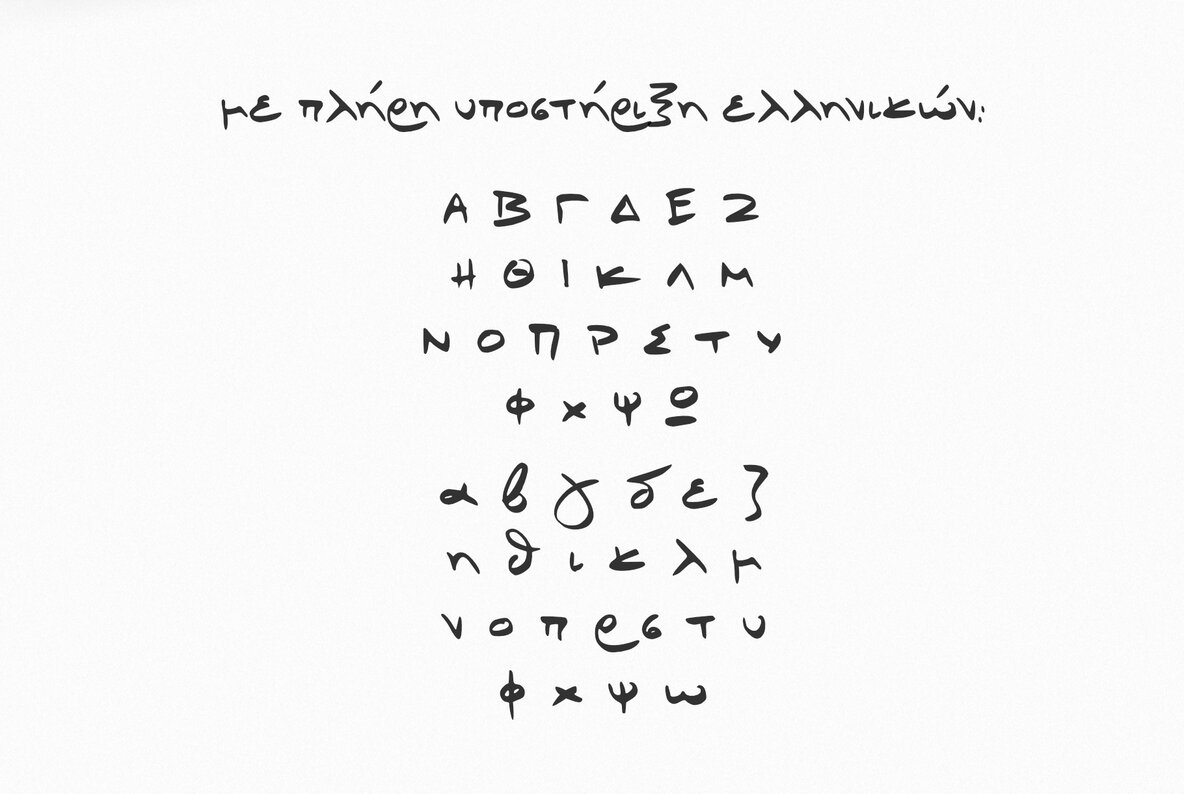 με πλήρη υποστήριξη ελληνικών:
Α Β Γ Δ Ε Ζ
Η Θ Ι Κ Λ Μ
Ν Ο Π Ρ Σ Τ Υ
Φ Χ Ψ Ω
α β γ δ ε ζ
η θ ι κ λ μ
ν ο π ρ σ τ υ
φ χ ψ ω